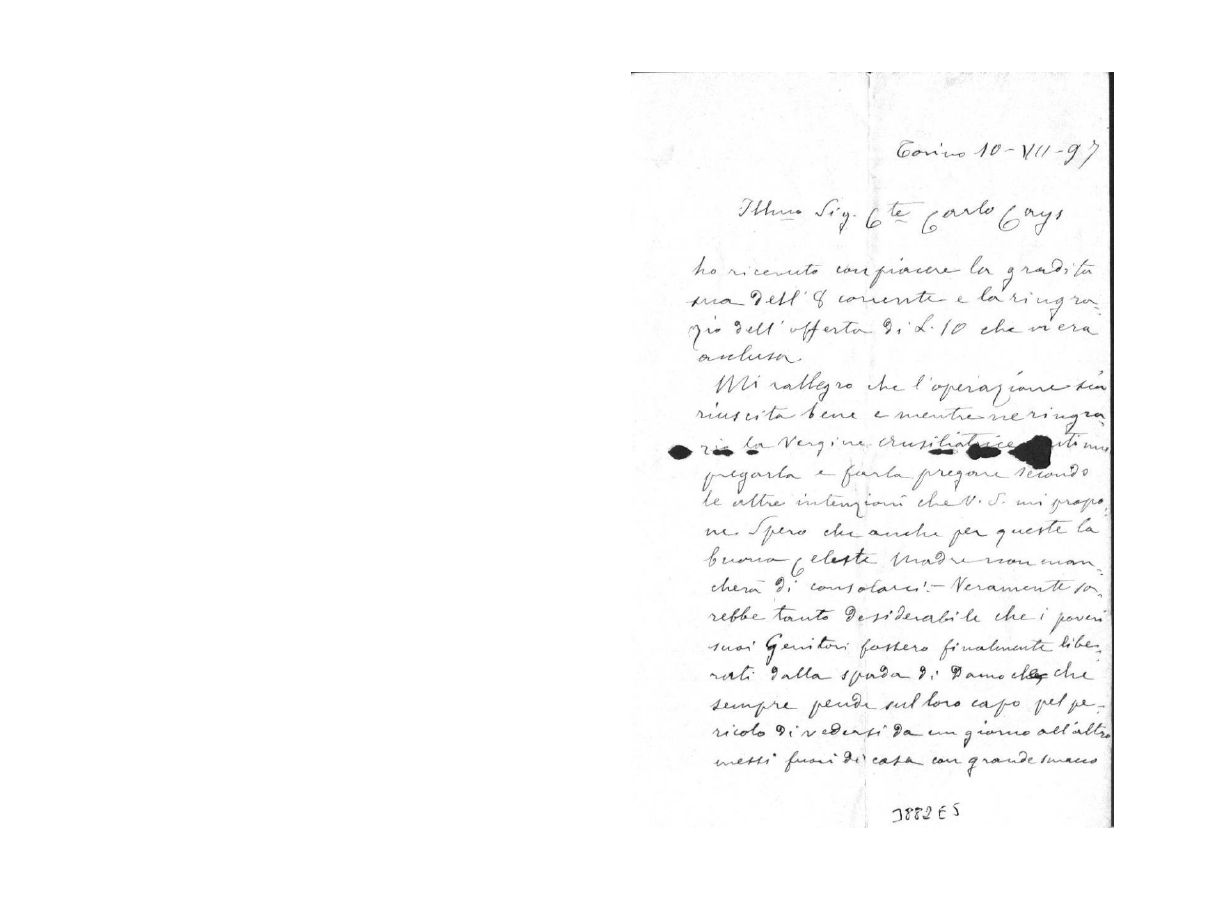 Torino 10-VII-97
Ill.mo Sig. C.te Carlo Cays
ho ricevuto con piacere la gradita
sua dell' 8 corrente e la ringra-
zio dell'offerta di L. 10 che vi era
acclusa.
Mi rallegro che l'operazione sia
riuscita bene e mentre ne ringra-
zio la Vergine
pregarla e farla pregare secondo
le altre intenzioni che V. S. mi propo-
ne. Spero che anche per queste la
buona Celeste Madre non man-
cherà di consolarci. - Veramente sa-
rebbe tanto desiderabile che i poveri
suoi Genitori fossero finalmente libe-
rati dalla spada di Damocle che
sempre pende sul loro capo pel pe-
ricolo di vedersi da un giorno all'altro
messi fuori di casa con grande smacco
3882 E5